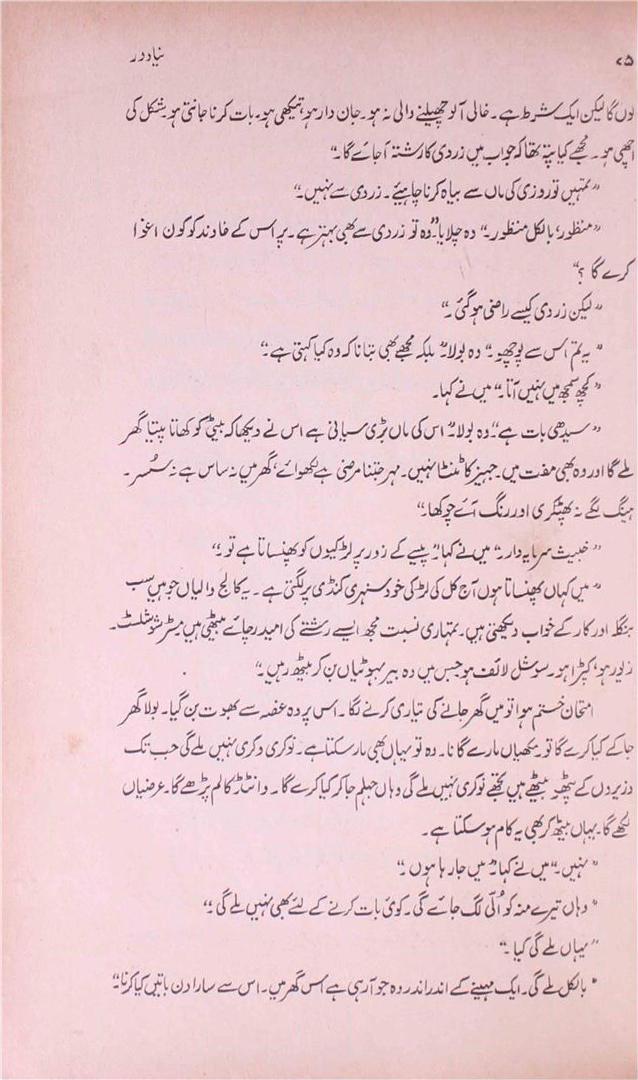 ۷۵ نیا دور
لوں گا لیکن ایک شرط ہے۔ خالی آلو چھیلنے والی نہ ہو۔ جان دار ہو، تیکھی ہو، بات کرنا جانتی ہو۔ شکل کی
اچھی ہو۔ مجھے کیا پتہ تھا کہ جواب میں زردی کا رشتہ آ جائے گا۔“
”تمہیں تو روزی کی ماں سے بیاہ کرنا چاہیئے۔ زردی سے نہیں۔“
”منظور، بالکل منظور۔“ وہ چلایا۔ ”وہ تو زردی سے بھی بہتر ہے۔ پر اس کے خاوند کو کون اغوا
کرے گا؟“
”لیکن زردی کیسے راضی ہو گئی۔“
”یہ تم اس سے پوچھو۔“ وہ بولا۔ ”بلکہ مجھے بھی بتانا کہ وہ کیا کہتی ہے۔“
”کچھ سمجھ میں نہیں آتا۔“ میں نے کہا۔
”سیدھی بات ہے“۔ وہ بولا۔ ”اس کی ماں بڑی سیانی ہے اس نے دیکھا کہ بیٹی کو کھاتا پیتا گھر
ملے گا اور وہ بھی مفت میں۔ جہیز کا ٹنٹا نہیں۔ مہر جتنا مرضی ہے لکھوائے، گھر میں نہ ساس ہے نہ سُسر۔
ہینگ لگے نہ پھٹکری اور رنگ آئے چوکھا۔“
”خبیث سرمایہ دار۔“ میں نے کہا۔ ”پیسے کے زور پر لڑکیوں کو پھنساتا ہے تو۔“
”میں کہاں پھنساتا ہوں آج کل کی لڑکی خود سنہری کنڈی پر لگتی ہے۔ یہ کالج والیاں جو ہیں سب
بنگلہ اور کار کے خواب دیکھتی ہیں۔ تمہاری نسبت مجھ ایسے رشتے کی امید رچائے بیٹھی ہیں مسٹر سوشلسٹ۔
زیور ہو، کپڑا ہو۔ سوشل لائف ہو جس میں وہ بیر بہوٹیاں بن کر بیٹھ رہیں۔“
امتحان ختم ہوا تو میں گھر جانے کی تیاری کرنے لگا۔ اس پر وہ غصہ سے بھوت بن گیا۔ بولا گھر
جا کے کیا کرے گا تو۔ مکھیاں مارے گا نا۔ وہ تو یہاں بھی مار سکتا ہے۔ نوکری وکری نہیں ملے گی جب تک
وزیروں کے پٹھو بیٹھے ہیں تجھے نوکری نہیں ملے گی وہاں جہلم جا کر کیا کرے گا۔ وانٹڈ کالم پڑھے گا۔ عرضیاں
لکھے گا۔ یہاں بیٹھ کر بھی یہ کام ہو سکتا ہے۔
”نہیں۔“ میں نے کہا۔ ”میں جا رہا ہوں۔“
”وہاں تیرے منہ کو اُلّی لگ جائے گی۔ کوئی بات کرنے کے لئے بھی نہیں ملے گی۔“
”یہاں ملے گی کیا۔“
”بالکل ملے گی۔ ایک مہینے کے اندر اندر وہ جو آ رہی ہے اس گھر میں۔ اس سے سارا دن باتیں کیا کرنا۔“